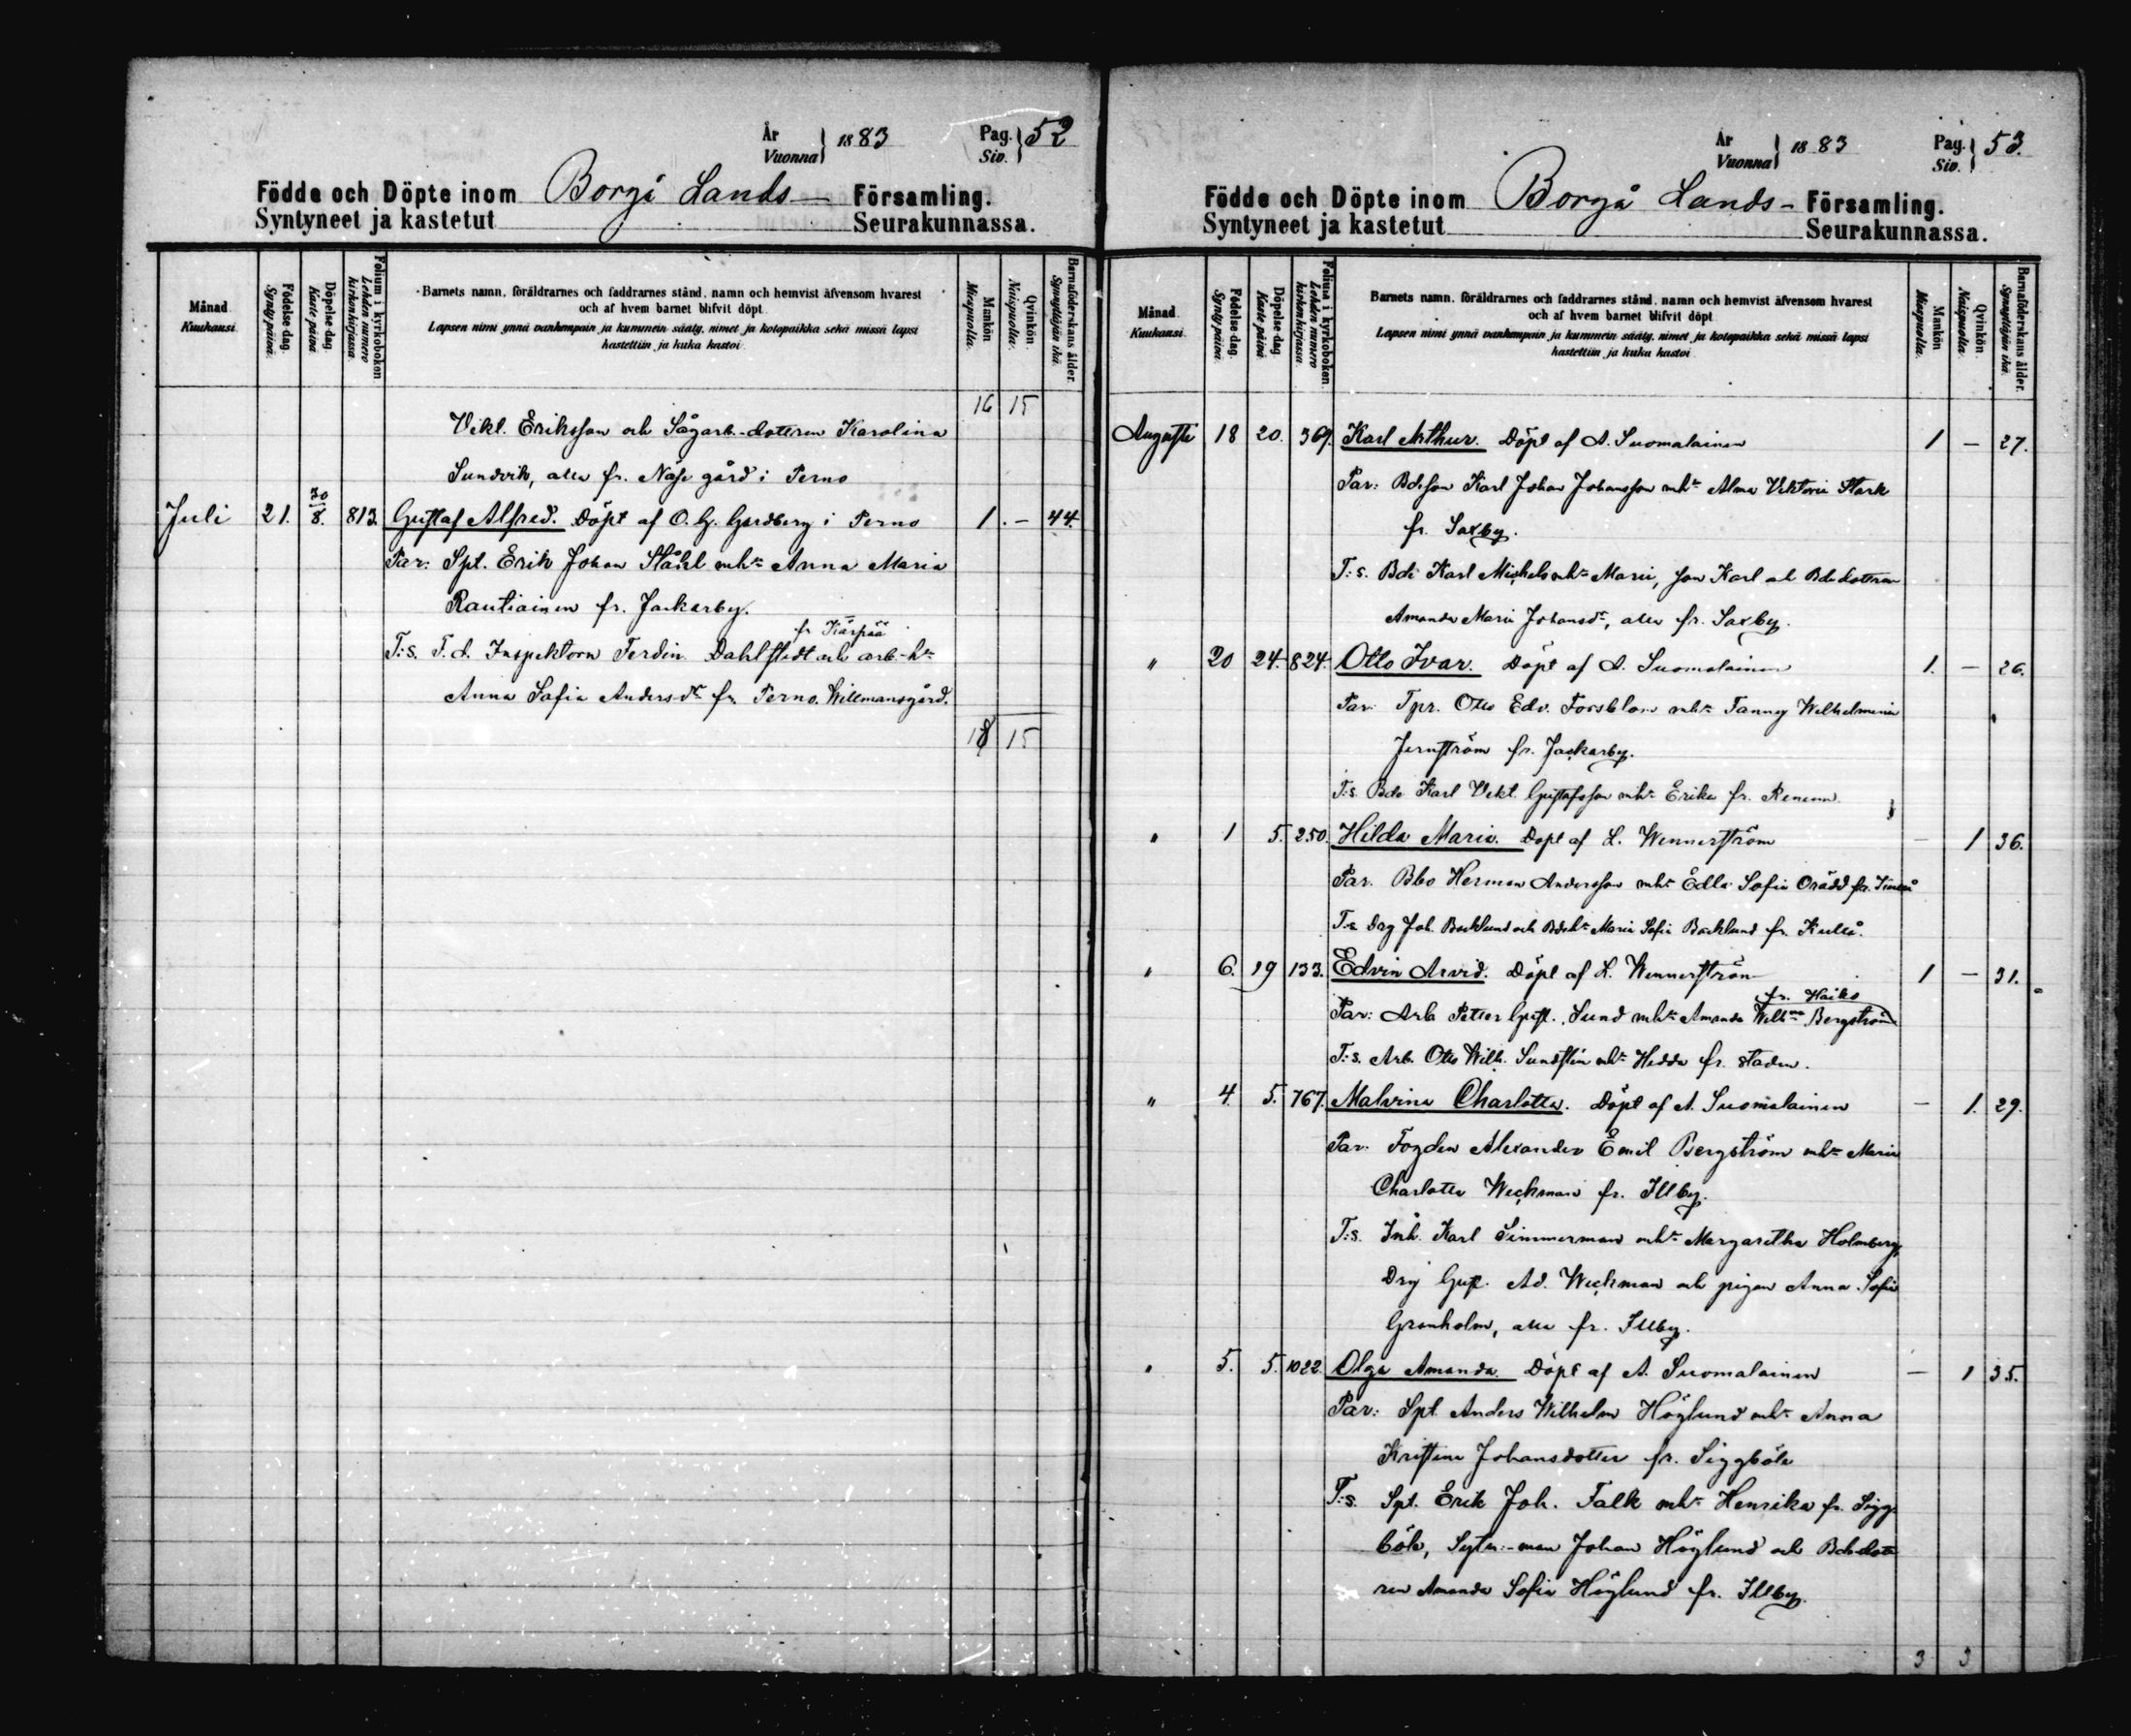 År
Vuonna } 1883 Pag. Siv. } 52
Födde och Döpte inom Borgå Lands- Församling.
Syntyneet ja kastetut Seurakunnassa.
Månad Kuukausi
Födelse dag. Synty päivä.
Döpelse dag Kaste päivä
Folium i kyrkoboken Lehden numero kirkonkirjassa.
Barnets namn, föräldrarnes och faddrarnes stånd, namn och hemvist äfvensom hvarest
och af hvem barnet blifvit döpt.
Lapsen nimi ynnä vanhempain ja kummein sääty, nimet ja kotopaikka sekä missä lapsi
kastettiin ja kuka kastoi
Mankön Miespuolia.
Qvinkön Naispuolia.
Barnaföderskans ålder. Synnyttäjän ikä.
16 15
Vikt. Eriksson och Sågarb.-dottren Karolina
Sundvik, alla fr. Näse gård i Perno
Juli 21. 20/8. 813. Gustaf Alfred. Döpt af O. G. Gardberg i Perno 1. – 44.
Par: Spt. Erik Johan Ståhl mhu Anna Maria
Rautiainen fr. Jackarby.
fr Kärpää
T:s. F.d. Inspektorn Ferdin. Dahlstedt och arb-hu
Anna Sofia Andersdr fr. Perno. Willmansgård.
18 15
År
Vuonna } 1883 Pag. Siv. } 53.
Födde och Döpte inom Borgå Lands- Församling.
Syntyneet ja kastetut Seurakunnassa.
Månad Kuukausi
Födelse dag. Synty päivä.
Döpelse dag Kaste päivä
Folium i kyrkoboken Lehden numero kirkonkirjassa.
Barnets namn, föräldrarnes och faddrarnes stånd, namn och hemvist äfvensom hvarest
och af hvem barnet blifvit döpt
Lapsen nimi ynnä vanhempain ja kummein sääty, nimet ja kotopaikka sekä missä lapsi
kastettiin ja kuka kastoi
Mankön Miespuolia.
Qvinkön Naispuolia.
Barnaföderskans ålder. Synnyttäjän ikä.
Augusti 18 20. 369. Karl Arthur. Döpt af A. Suomalainen 1 – 27.
Par: Bdeson Karl Johan Johansson mhu Alma Viktoria Stark
fr. Saxby.
T:s. Bde Karl Michels mhu Maria, son Karl och Bdedottren
Amanda Maria Johansdr, alla fr. Saxby.
" 20 24. 824. Otto Ivar. Döpt af A. Suomalainen 1. – 26.
Par: Tpr. Otto Edv. Forsblom mhu Fanny Wilhelmina
Jernström fr. Jackarby.
T:s. Bde Karl Vikt. Gustafsson mhu Erika fr. Renum.
" 1 5. 250. Hilda Maria. Döpt af L. Wennerström – 1 36.
Par. Bbo Herman Andersson mhu Edla Sofia Orädd fr.
T:s. Drg Joh. Backlund och Bdehu Maria Sofia Backlund fr. Kullo.
" 6. 19 133. Edvin Arvid. Döpt af L. Wennerström 1 – 31.
fr. Haiko
Par: Arb Petter Gust. Lund mhu Amanda Wilhna Bergström
T:s. Arb. Otto Wilh. Sundstén mhu Hedda fr. staden.
" 4. 5. 767. Malvina Charlotta. Döpt af A. Suomalainen – 1. 29.
Par: Fogden Alexander Emil Bergström mhu Maria
Charlotta Weckman fr. Illby.
T:s. Inh. Karl Simmerman mhu Margaretha Holmberg,
Drg Gust. Ad. Weckman och pigan Anna Sofia
Granholm, alla fr. Illby.
" 5. 5. 1022. Olga Amanda. Döpt af A. Suomalainen – 1 35.
Par: Spt. Anders Wilhelm Höglund mhu Anna
Kristina Johansdotter fr. Siggböle
T:s. Spt. Erik Joh. Falk mhu Henrika fr. Sigg
böle, Sytn.-man Johan Höglund och Bdedott
ren Amanda Sofia Höglund fr. Illby.
3 3